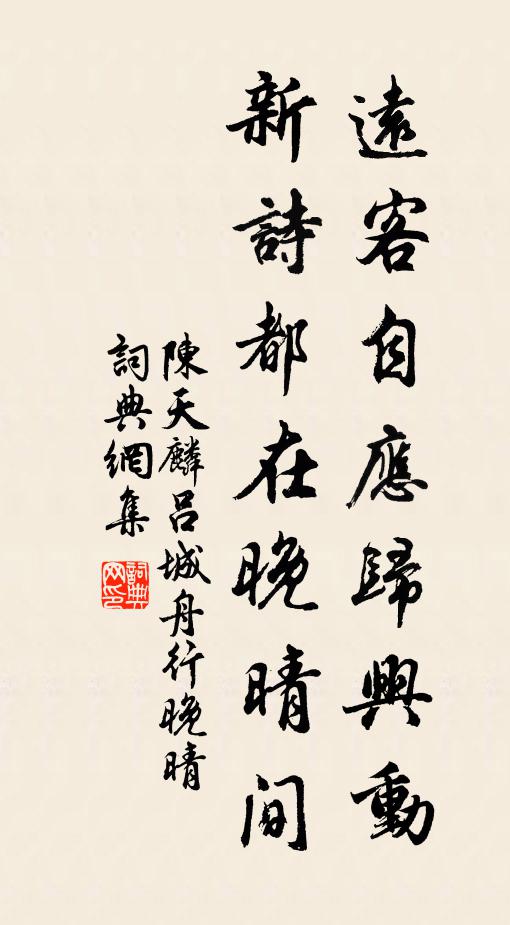 遠客自應歸興動
新詩都在晚晴間
陳天麟呂城舟行晚晴
詞典網集
詞典网印